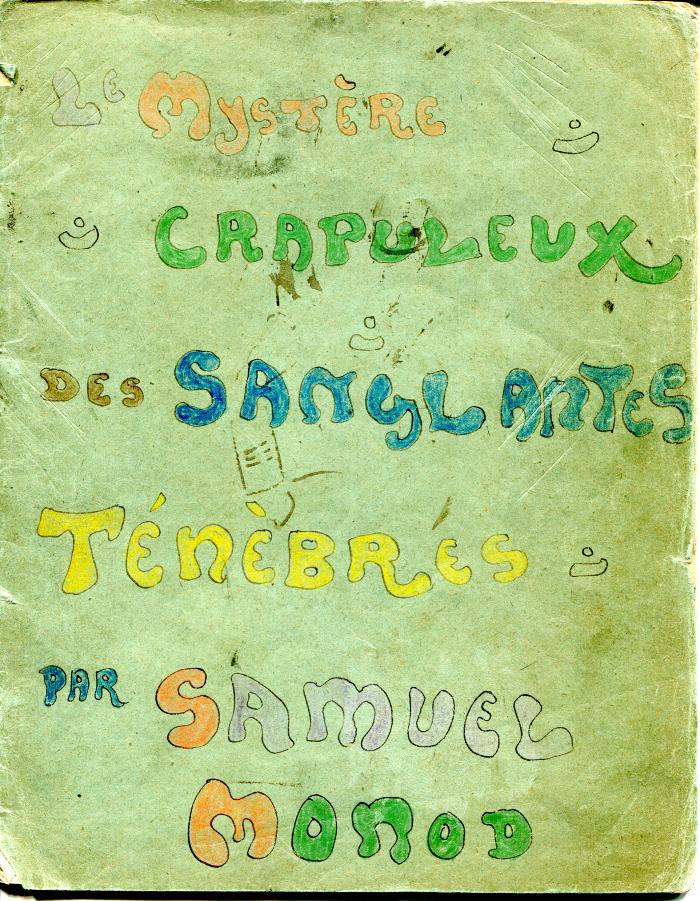 Le Mystère
CRAPULEUX
DES SANGLANTES
TÉNÈBRES
PAR SAMUEL
MONOD